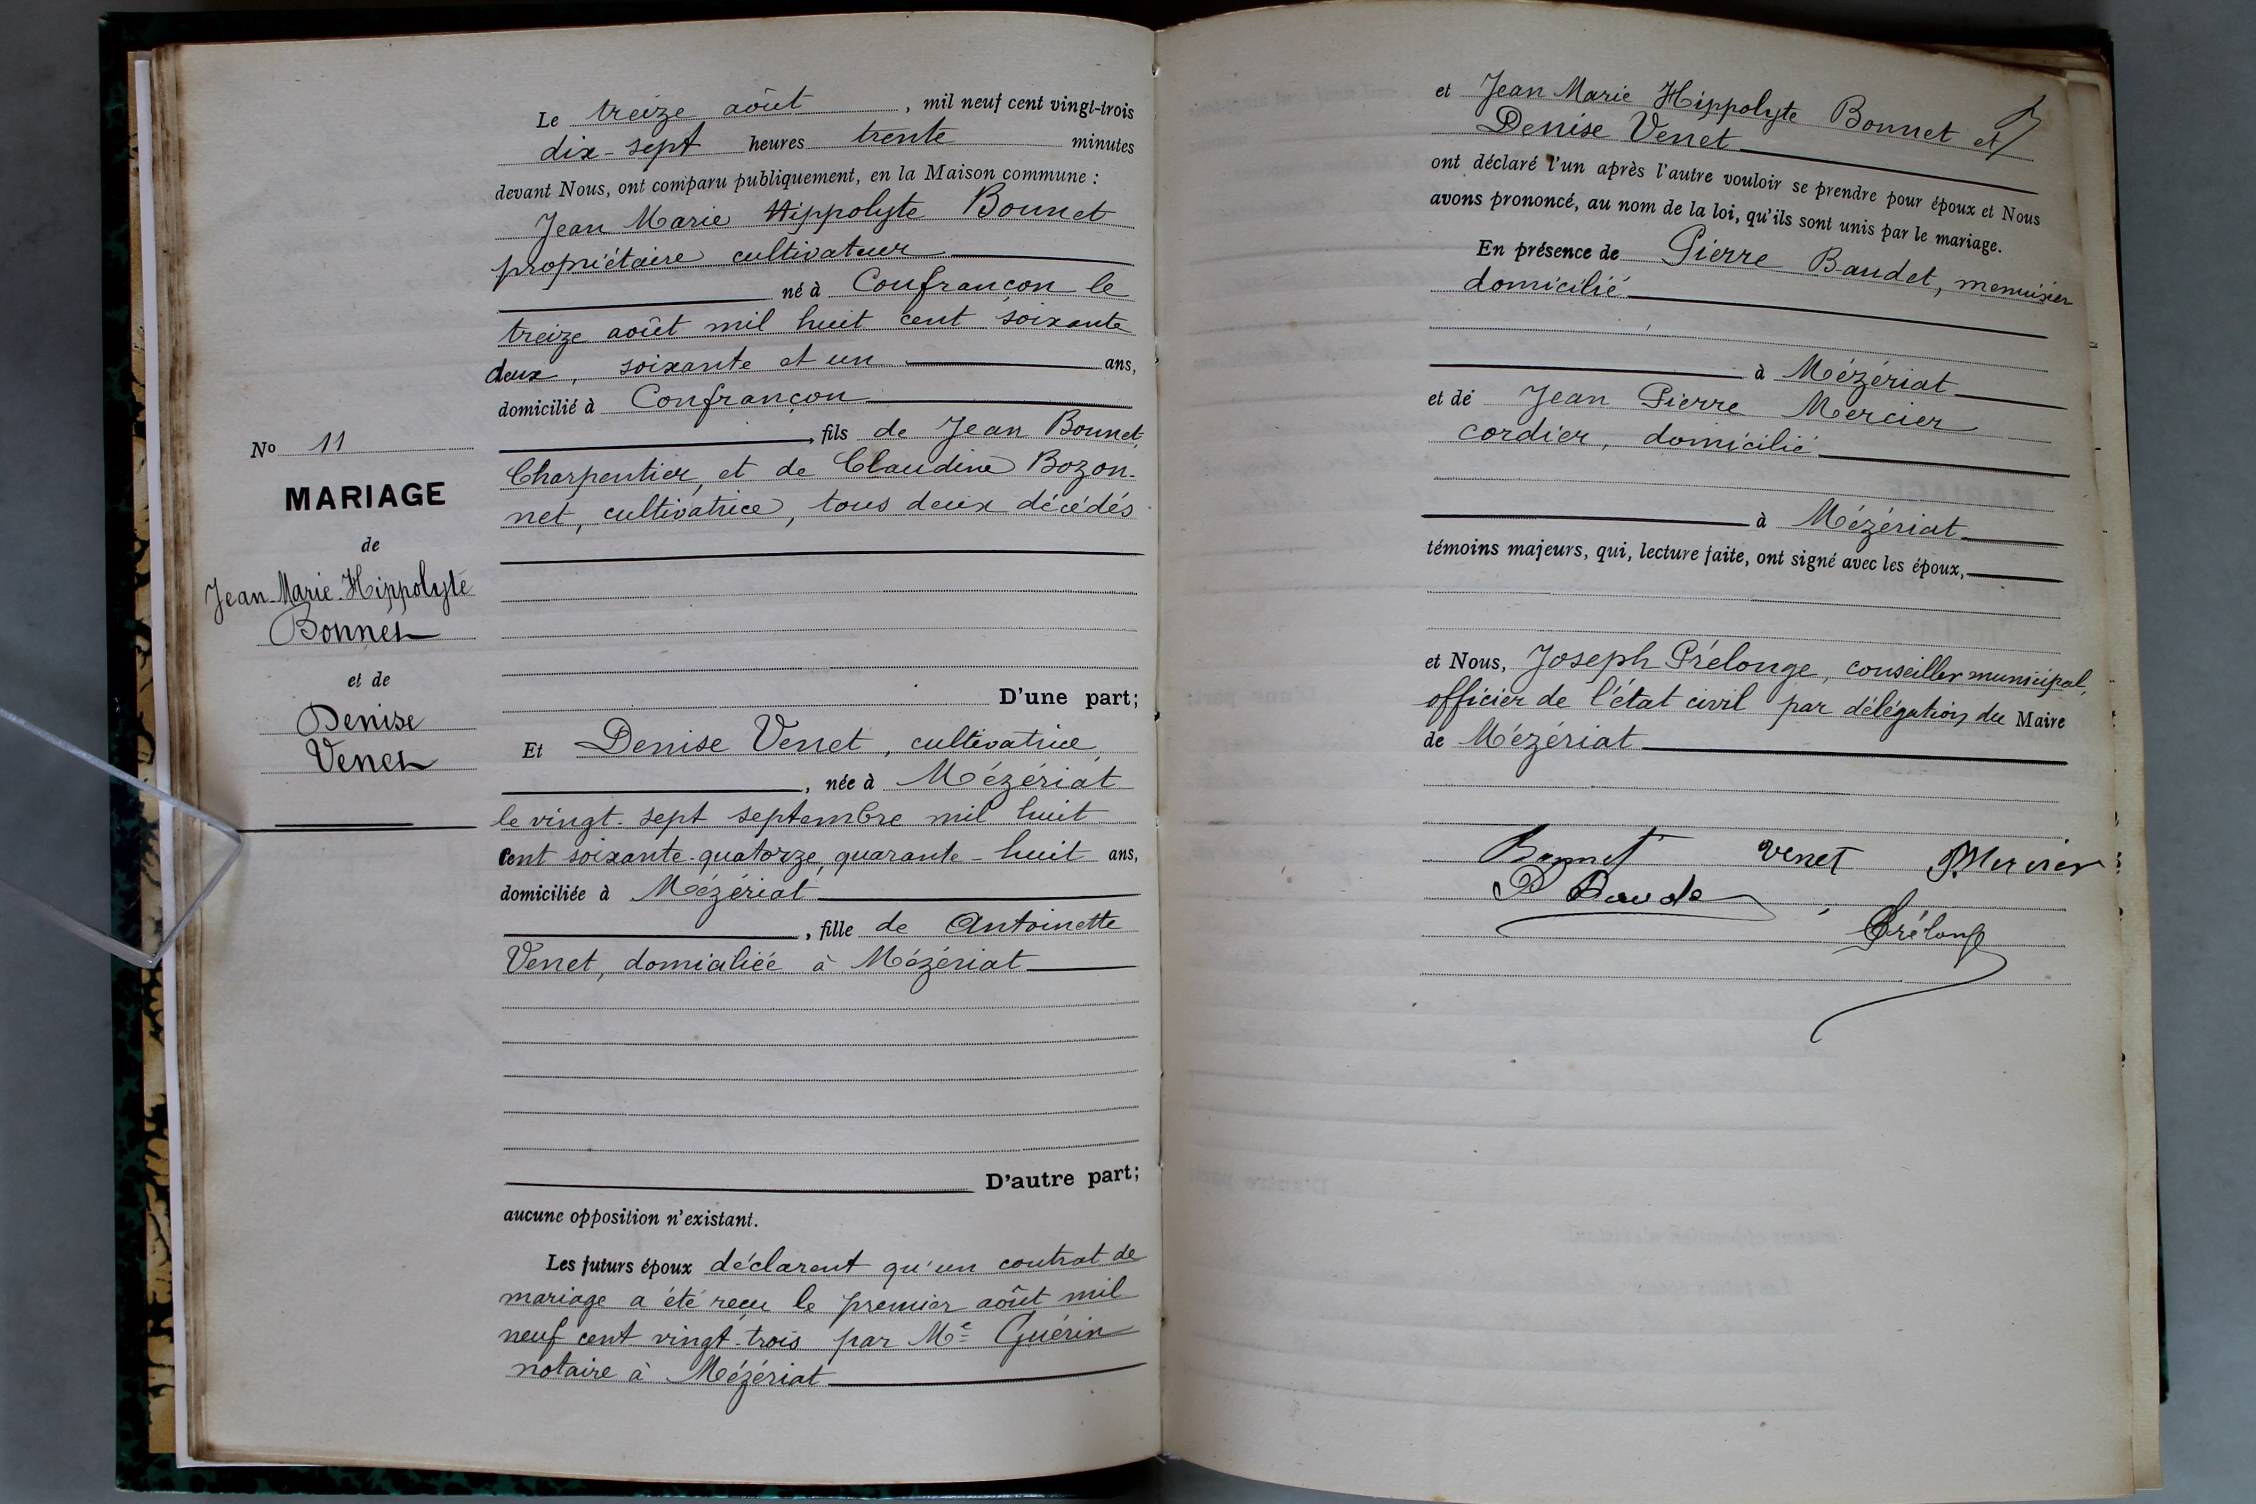 Le treize août, mil neuf cent vingt-trois
dix-sept heures trente minutes
devant Nous, ont comparu publiquement, en la Maison commune :
Jean Marie Hippolyte Bonnet
propriétaire cultivateur
né à Confrançon le
treize août mil huit cent soixante
deux, soixante et un ans,
domicilié à Confrançon
, fils de Jean Bonnet,
Charpentier, et de Claudine Bozon-
net, cultivatrice, tous deux décédés
No 11
MARIAGE
de
Jean-Marie-Hippolyte
Bonnet
et de
Denise
Venet
D'une part;
Et Denise Venet, cultivatrice,
, née à Mézériat
le vingt-sept septembre mil huit
cent soixante-quatorze, quarante-huit ans,
domiciliée à Mézériat
, fille de Antoinette
Venet, domiciliée à Mézériat
D'autre part;
aucune opposition n'existant.
Les futurs époux déclarent qu'un contrat de
mariage a été reçu le premier août mil
neuf cent vingt-trois par Me Guérin
notaire à Mézériat
et Jean Marie Hippolyte Bonnet et
Denise Venet
ont déclaré l'un après l'autre vouloir se prendre pour époux et Nous
avons prononcé, au nom de la loi, qu'ils sont unis par le mariage.
En présence de Pierre Baudet, menuisier
domicilié
à Mézériat
et de Jean Pierre Mercier
cordier, domicilié
à Mézériat
témoins majeurs, qui, lecture faite, ont signé avec les époux,
et Nous, Joseph Prélonge, conseiller municipal,
officier de l'état civil par délégation du Maire
de Mézériat
Bonnet Venet P Mercier
P Baude
Prélonge